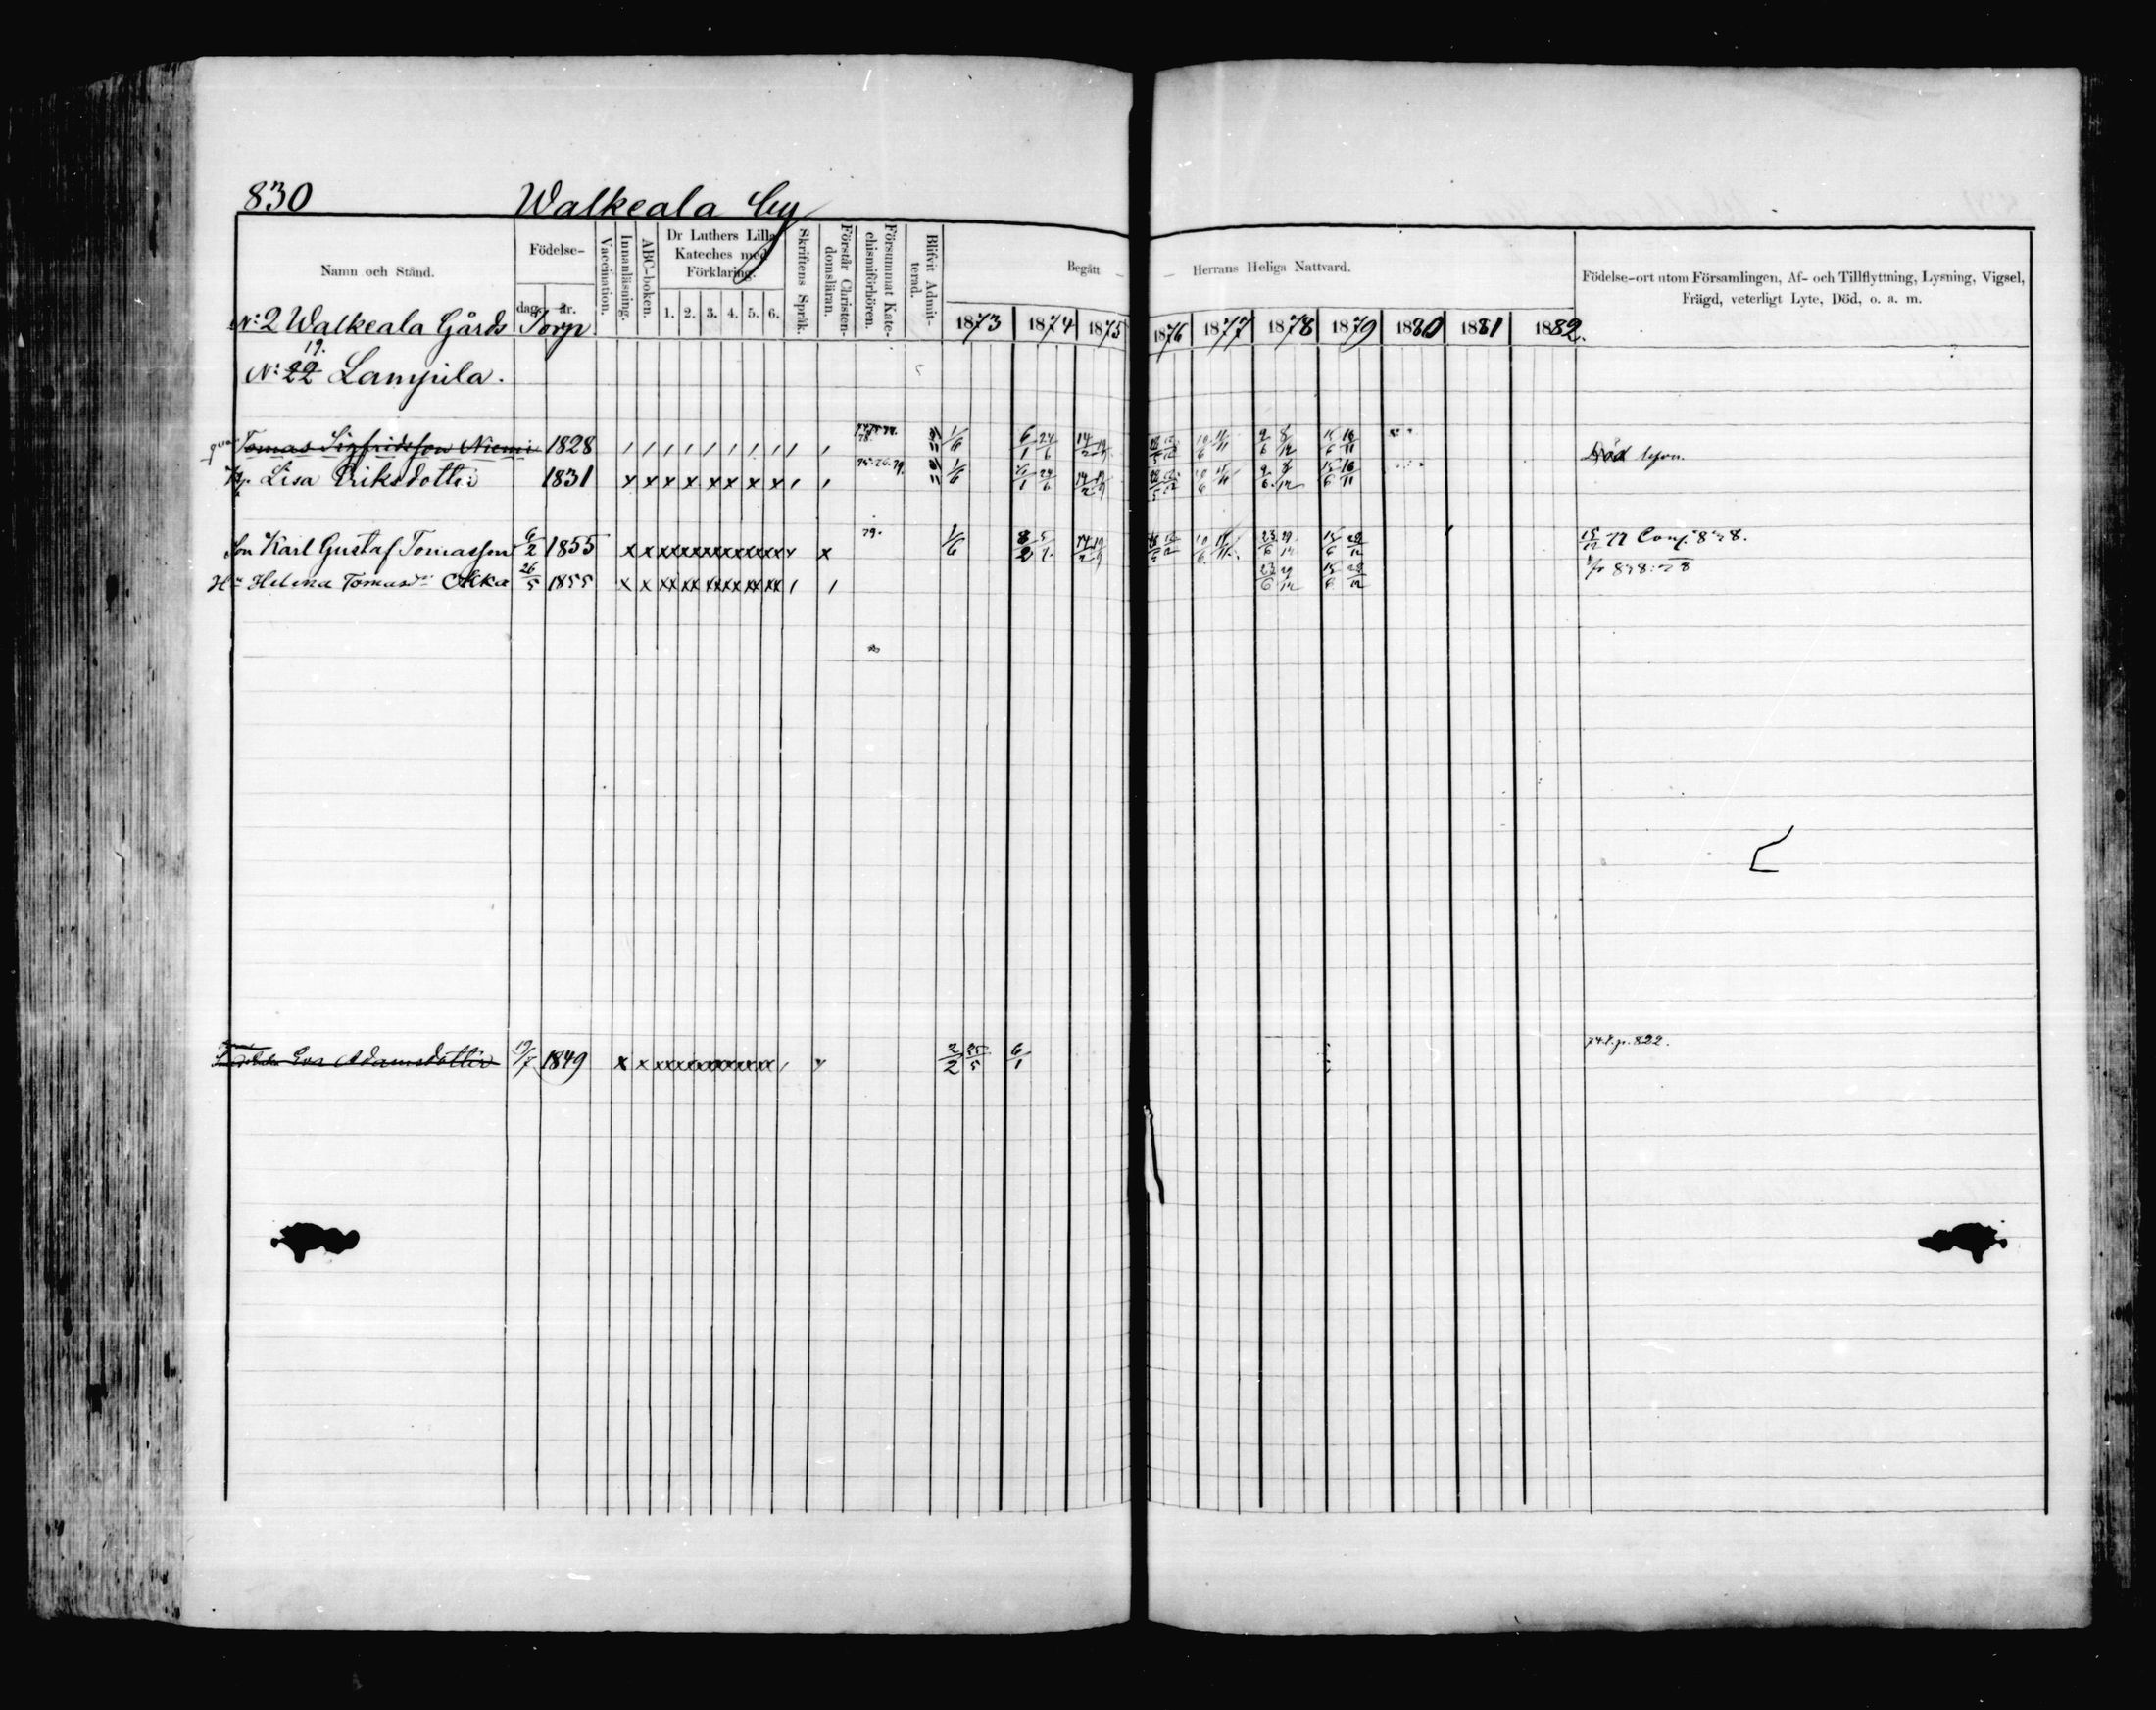 830 Walkeala by
Namn och Stånd.
Födelse-
dag. år.
Vaccination.
Innanläsning.
ABC-boken.
Dr Luthers Lilla
Kateches med
Förklaring.
1. 2. 3. 4. 5. 6.
Skriftens Språk.
Förstår Christen-
domsläran.
Försummat Kate-
chismiförhören.
Blifvit Admit-
terad.
Begått — — Herrans Heliga Nattvard.
1873 1874 1875 1876 1877 1878 1879 1880 1881 1882.
Födelse-ort utom Församlingen, Af- och Tillflyttning, Lysning, Vigsel,
Frägd, veterligt Lyte, Död, o. a. m.
N:2 Walkeala Gårds Torp
19.
N:22 Lampila.
Tomas Sigfridsson Niemi 1828 1/6 6/1 24/6 9/6 8/12 15/6 16/11 Död
Lisa Eriksdotter 1831 1/6 6/1 24/6 9/6 8/12 15/6 16/11
Son Karl Gustaf Tomasson 6/2 1855 79. 1/6 23/6 15/6 28/12 15/12 77 Conf. 838.
Hu Helena Tomasdr Alka 26/5 1855 23/6 15/6 28/12
Eva Adamsdotter 19/7 1849 2/2 25/5 6/1 74 t. p. 822.